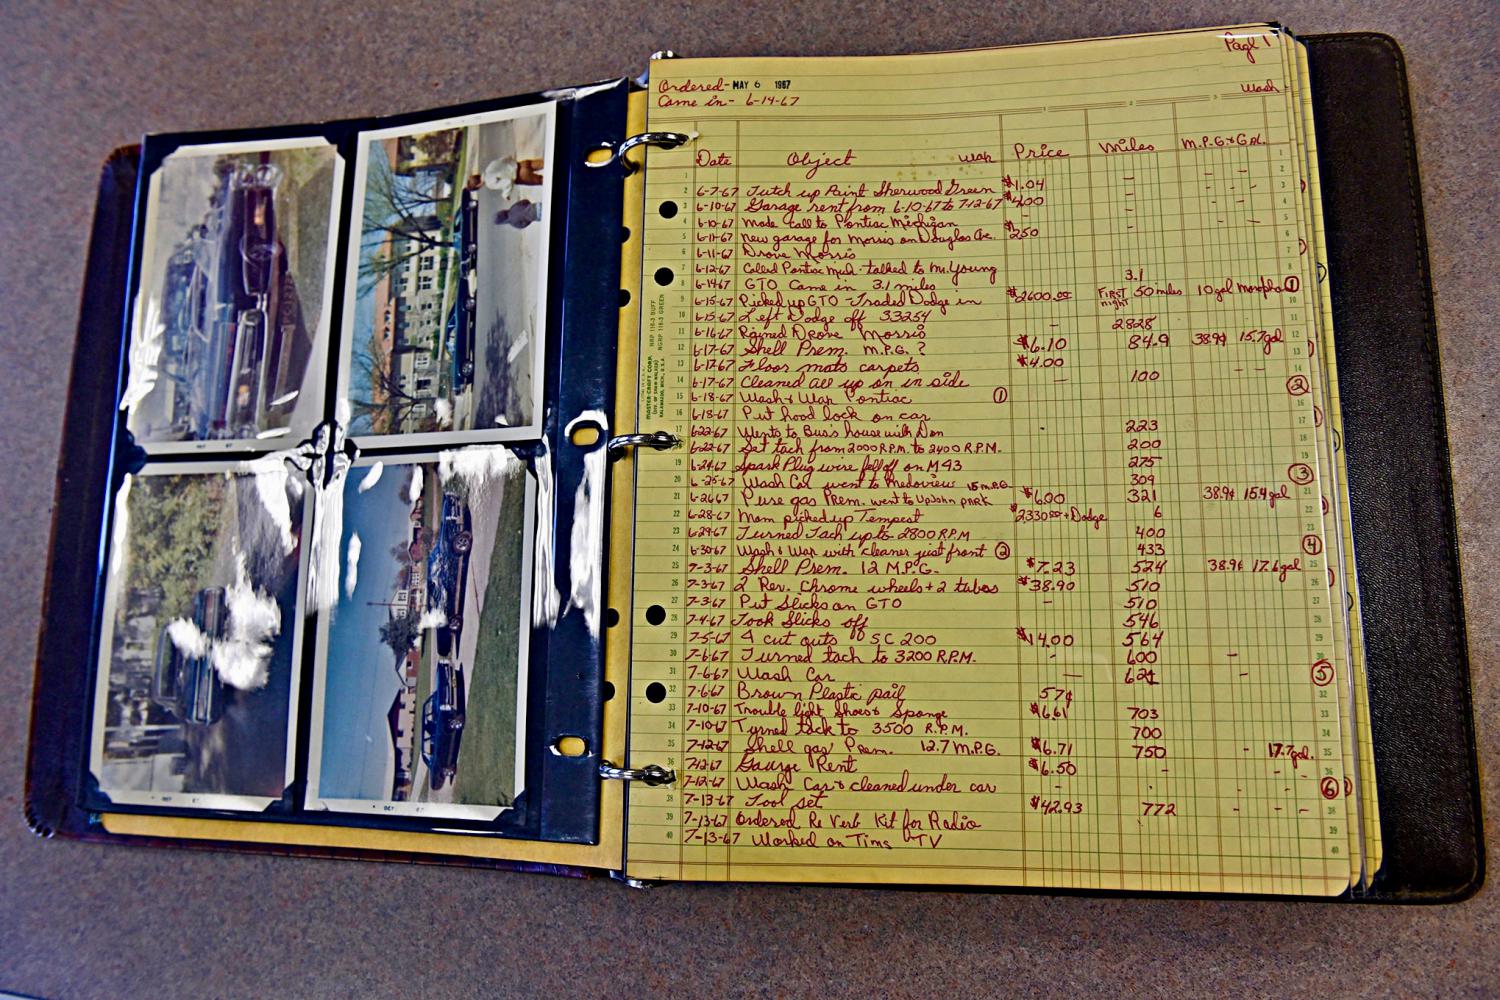 Page 1
Ordered- MAY 6 1967
Came in- 6-14-67
Wash
Date Object Wax Price Miles M.P.G.+Gal.
6-7-67 Tutch up Paint Sherwood Green $1.04 –
6-10-67 Garage rent from 6-10-67 to 7-12-67 $4.00 –
6-10-67 Made call to Pontiac Michigan – –
6-11-67 New garage for Morris on Douglas Ave. $2.50 –
6-11-67 Drove Morris
6-12-67 Called Pontiac Mich. talked to Mr. Young
6-14-67 GTO Came in 3.1 miles 3.1
6-15-67 Picked up GTO - Traded Dodge in $2600.00 First night 50 miles 10 gal 1
6-15-67 Left Dodge off 33254
6-16-67 Rained Drove Morris – 2828
6-17-67 Shell Prem. M.P.G. ? $6.10 84.9 38.9¢ 15.7 gal
6-17-67 Floor mats carpets $4.00
6-17-67 Cleaned all up on in side – 100
6-18-67 Wash & Wax Pontiac 1 2
6-18-67 Put hood lock on car
6-22-67 Wents to Bus's house with Don 223
6-22-67 Set tach from 2000 R.P.M. to 2400 R.P.M. 200
6-24-67 Spark Plug wire fell off on M43 275
6-25-67 Wash Car went to Medoview 15 M.P.G. 309 3
6-26-67 Pure gas Prem. went to UpJohn PARK $6.00 321 38.9¢ 15.4 gal
6-28-67 Mom picked up Tempest $2330.00 + Dodge 6
6-29-67 Turned Tach up to 2800 R.P.M 400
6-30-67 Wash & Wax with cleaner just front 2 433 4
7-3-67 Shell Prem. 12 M.P.G. $7.23 524 38.9¢ 17.6 gal
7-3-67 2 Rev. Chrome wheels + 2 tubes $38.90 510
7-3-67 Put Slicks on GTO – 510
7-4-67 Took Slicks off 546
7-5-67 4 cut outs SC 200 $14.00 564
7-6-67 Turned tach to 3200 R.P.M. – 600 –
7-6-67 Wash Car — 621 – 5
7-6-67 Brown Plastic pail 57¢
7-10-67 Trouble light Shoes & Sponge $6.61 703
7-10-67 Tyrned tack to 3500 R.P.M. 700
7-12-67 Shell gas Prem. 12.7 M.P.G. $6.71 750 - 17.7 gal.
7-12-67 Gaurge Rent $6.50 –
7-12-67 Wash Car & cleaned under car 6
7-13-67 Tool set $42.93 772
7-13-67 Ordered Re Verb Kit for Radio
7-13-67 Worked on Tims TV